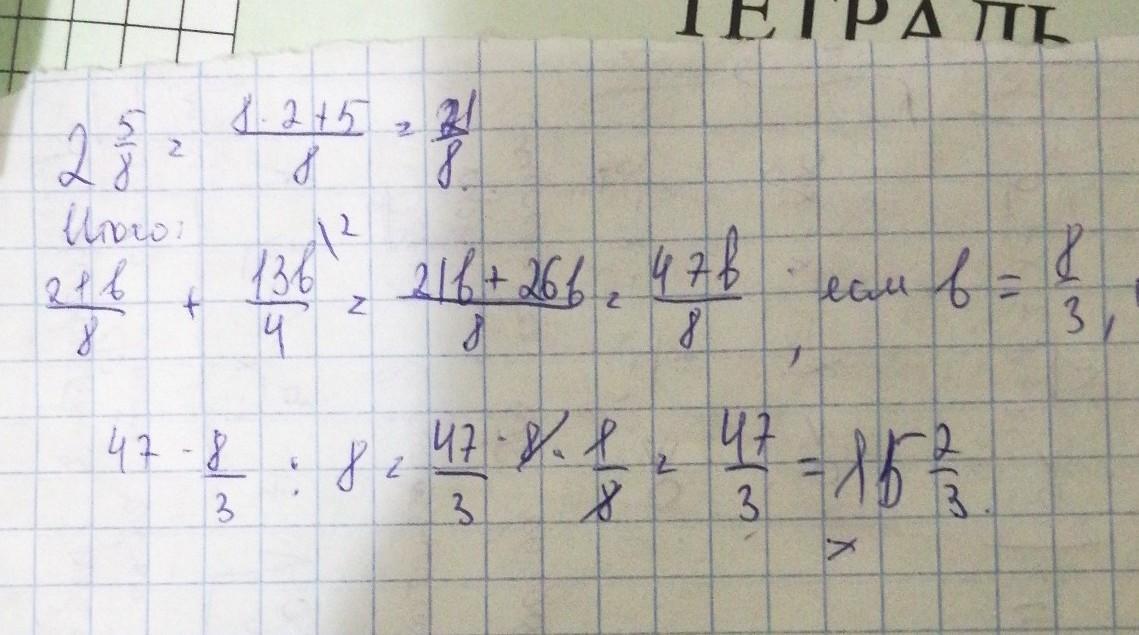 ТЕТРАДЬ
2 5/8 = (8·2+5)/8 = 21/8.
Итого:
21b/8 + 13b/4 \2 = (21b+26b)/8 = 47b/8, если b = 8/3,
47 · 8/3 : 8 = 47/3 · 8 · 1/8 = 47/3 = 15 2/3.